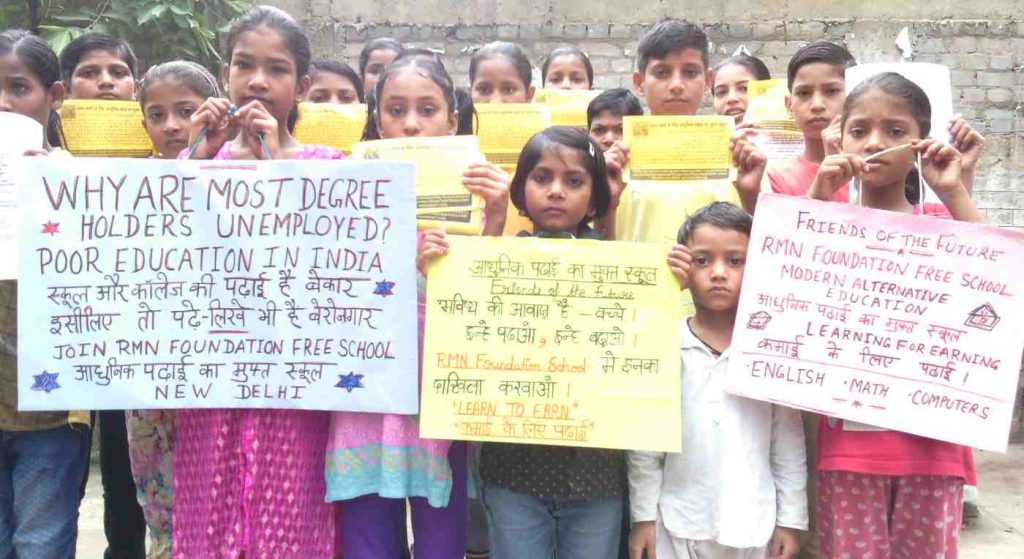 WHY ARE MOST DEGREE
HOLDERS UNEMPLOYED?
POOR EDUCATION IN INDIA
स्कूल और कॉलेज की पढ़ाई है बेकार
इसीलिए तो पढ़े-लिखे भी हैं बेरोजगार
JOIN RMN FOUNDATION FREE SCHOOL
आधुनिक पढ़ाई का मुफ्त स्कूल
NEW DELHI
आधुनिक पढ़ाई का मुफ्त स्कूल
Friends of the Future
भविष्य की आवाज़ है - बच्चे।
इन्हे पढ़ाओ, इन्हे बढ़ाओ।
RMN Foundation School में इनका
दाखिला करवाओ।
"LEARN TO EARN"
"कमाई के लिए पढ़ाई"
FRIENDS OF THE FUTURE
RMN FOUNDATION FREE SCHOOL
MODERN ALTERNATIVE
EDUCATION
आधुनिक पढ़ाई का मुफ्त स्कूल
LEARNING FOR EARNING
कमाई के लिए पढ़ाई।
· ENGLISH · MATH · COMPUTERS